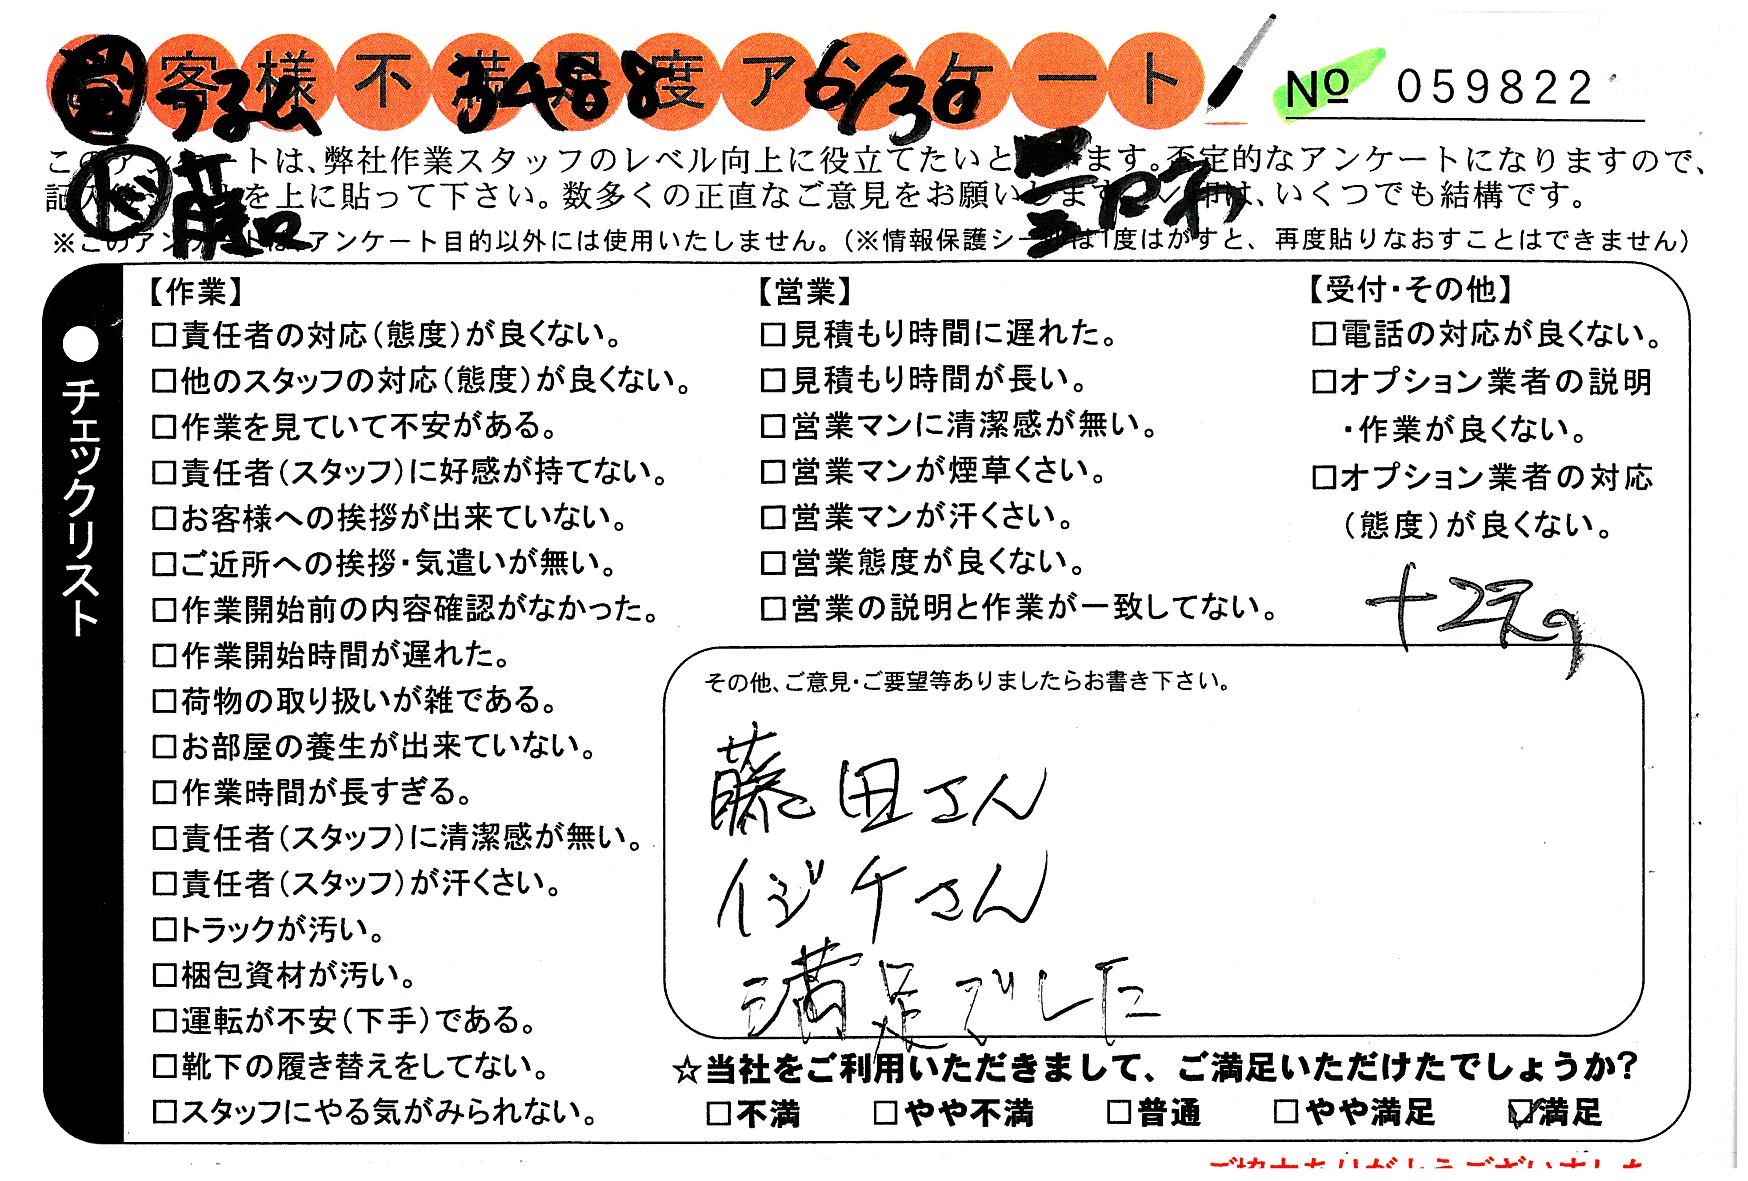 お客様不満足度アンケート
No 059822
3488 6/30
このアンケートは、弊社作業スタッフのレベル向上に役立てたいと ます。否定的なアンケートになりますので、
記入 を上に貼って下さい。数多くの正直なご意見をお願いします。 印は、いくつでも結構です。
※このアンケートは、アンケート目的以外には使用いたしません。(※情報保護シールは1度はがすと、再度貼りなおすことはできません)
●チェックリスト
【作業】
□責任者の対応(態度)が良くない。
□他のスタッフの対応(態度)が良くない。
□作業を見ていて不安がある。
□責任者(スタッフ)に好感が持てない。
□お客様への挨拶が出来ていない。
□ご近所への挨拶・気遣いが無い。
□作業開始前の内容確認がなかった。
□作業開始時間が遅れた。
□荷物の取り扱いが雑である。
□お部屋の養生が出来ていない。
□作業時間が長すぎる。
□責任者(スタッフ)に清潔感が無い。
□責任者(スタッフ)が汗くさい。
□トラックが汚い。
□梱包資材が汚い。
□運転が不安(下手)である。
□靴下の履き替えをしてない。
□スタッフにやる気がみられない。
【営業】
□見積もり時間に遅れた。
□見積もり時間が長い。
□営業マンに清潔感が無い。
□営業マンが煙草くさい。
□営業マンが汗くさい。
□営業態度が良くない。
□営業の説明と作業が一致してない。
【受付・その他】
□電話の対応が良くない。
□オプション業者の説明
・作業が良くない。
□オプション業者の対応
(態度)が良くない。
その他、ご意見・ご要望等ありましたらお書き下さい。
藤田さん
イジチさん
満足でした
☆当社をご利用いただきまして、ご満足いただけたでしょうか?
□不満 □やや不満 □普通 □やや満足 ☑満足
ご協力ありがとうございました